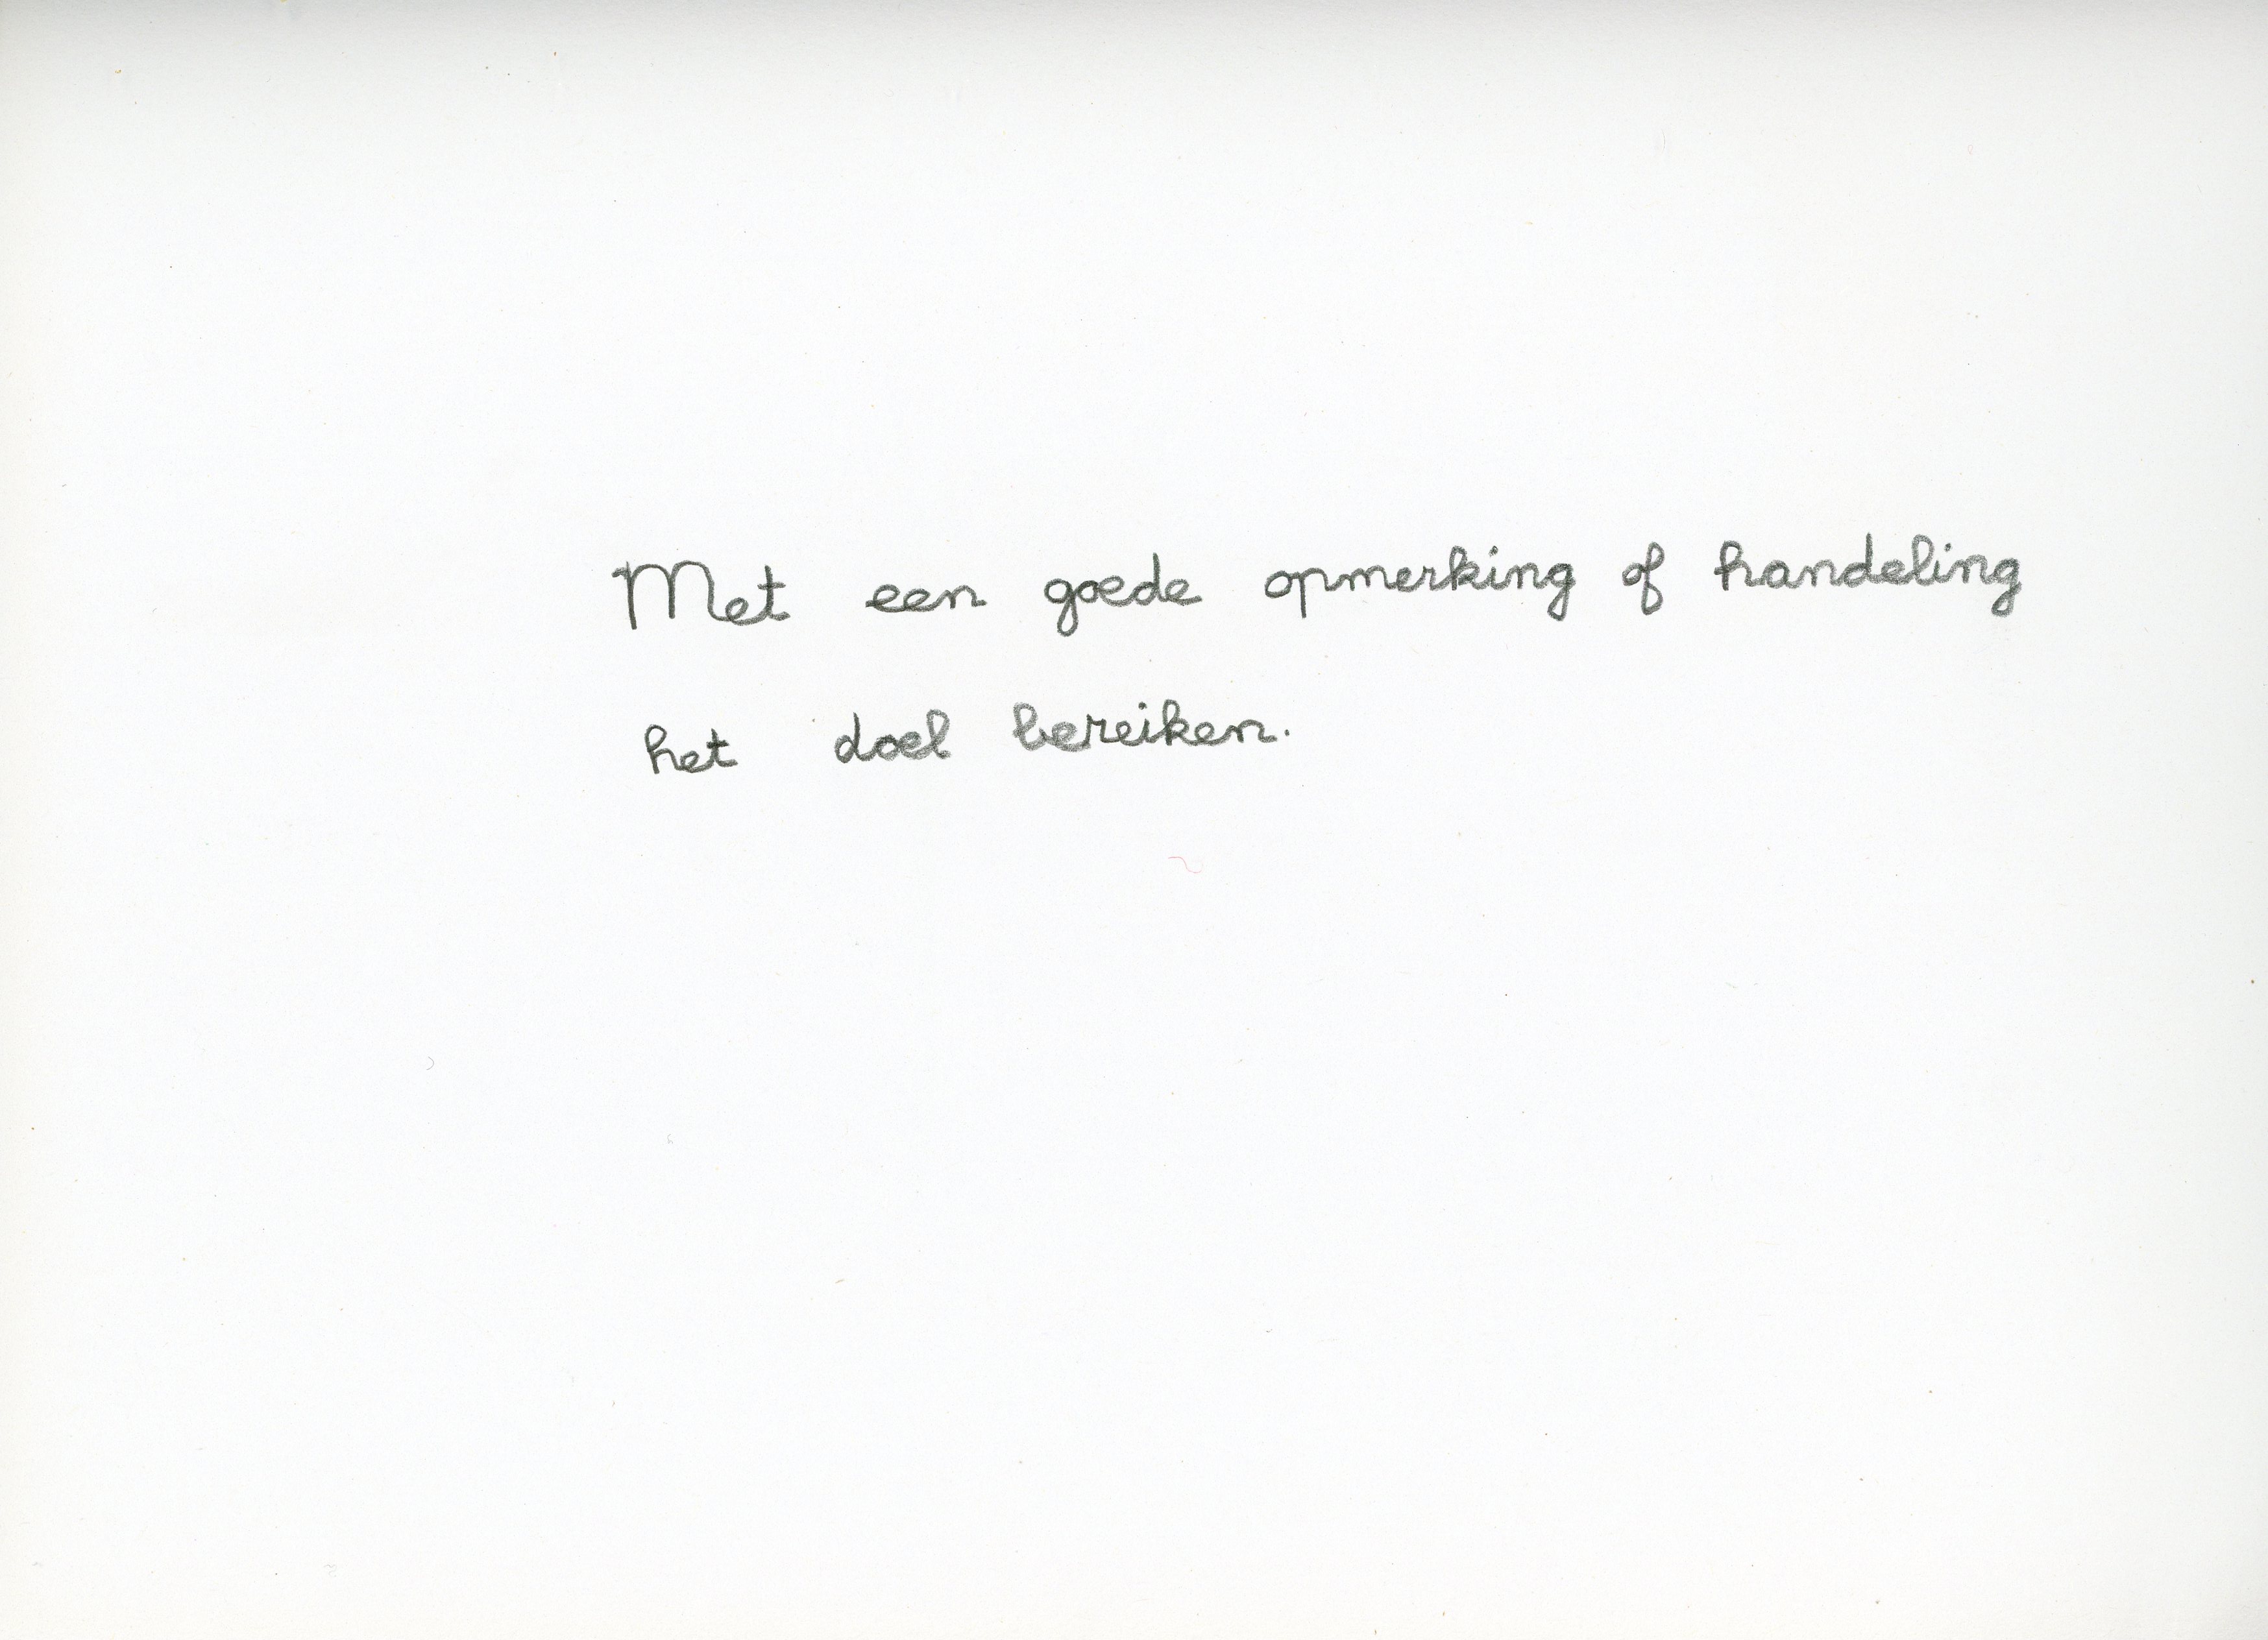 Met een goede opmerking of handeling
het doel bereiken.